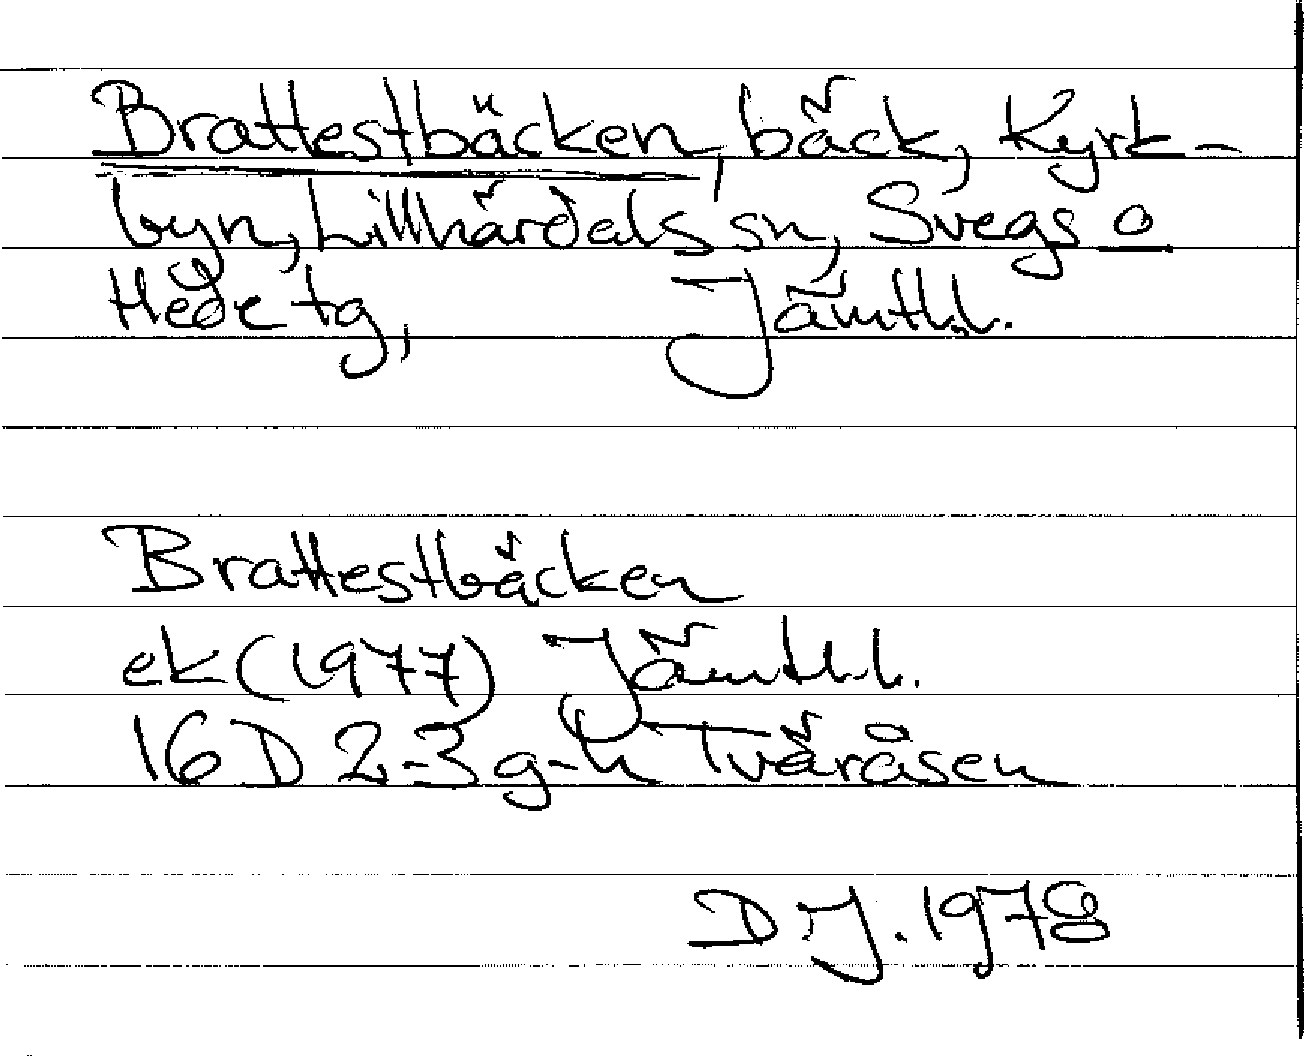 Brattestbäcken, bäck, Kyrk-
byn, Lillhärdals sn, Svegs o
Hede tg, Jämtl.l.
Brattestbäcken
ek (1977) Jämtl.l.
16D 2-3 g-h Tväråsen
DJ. 1978